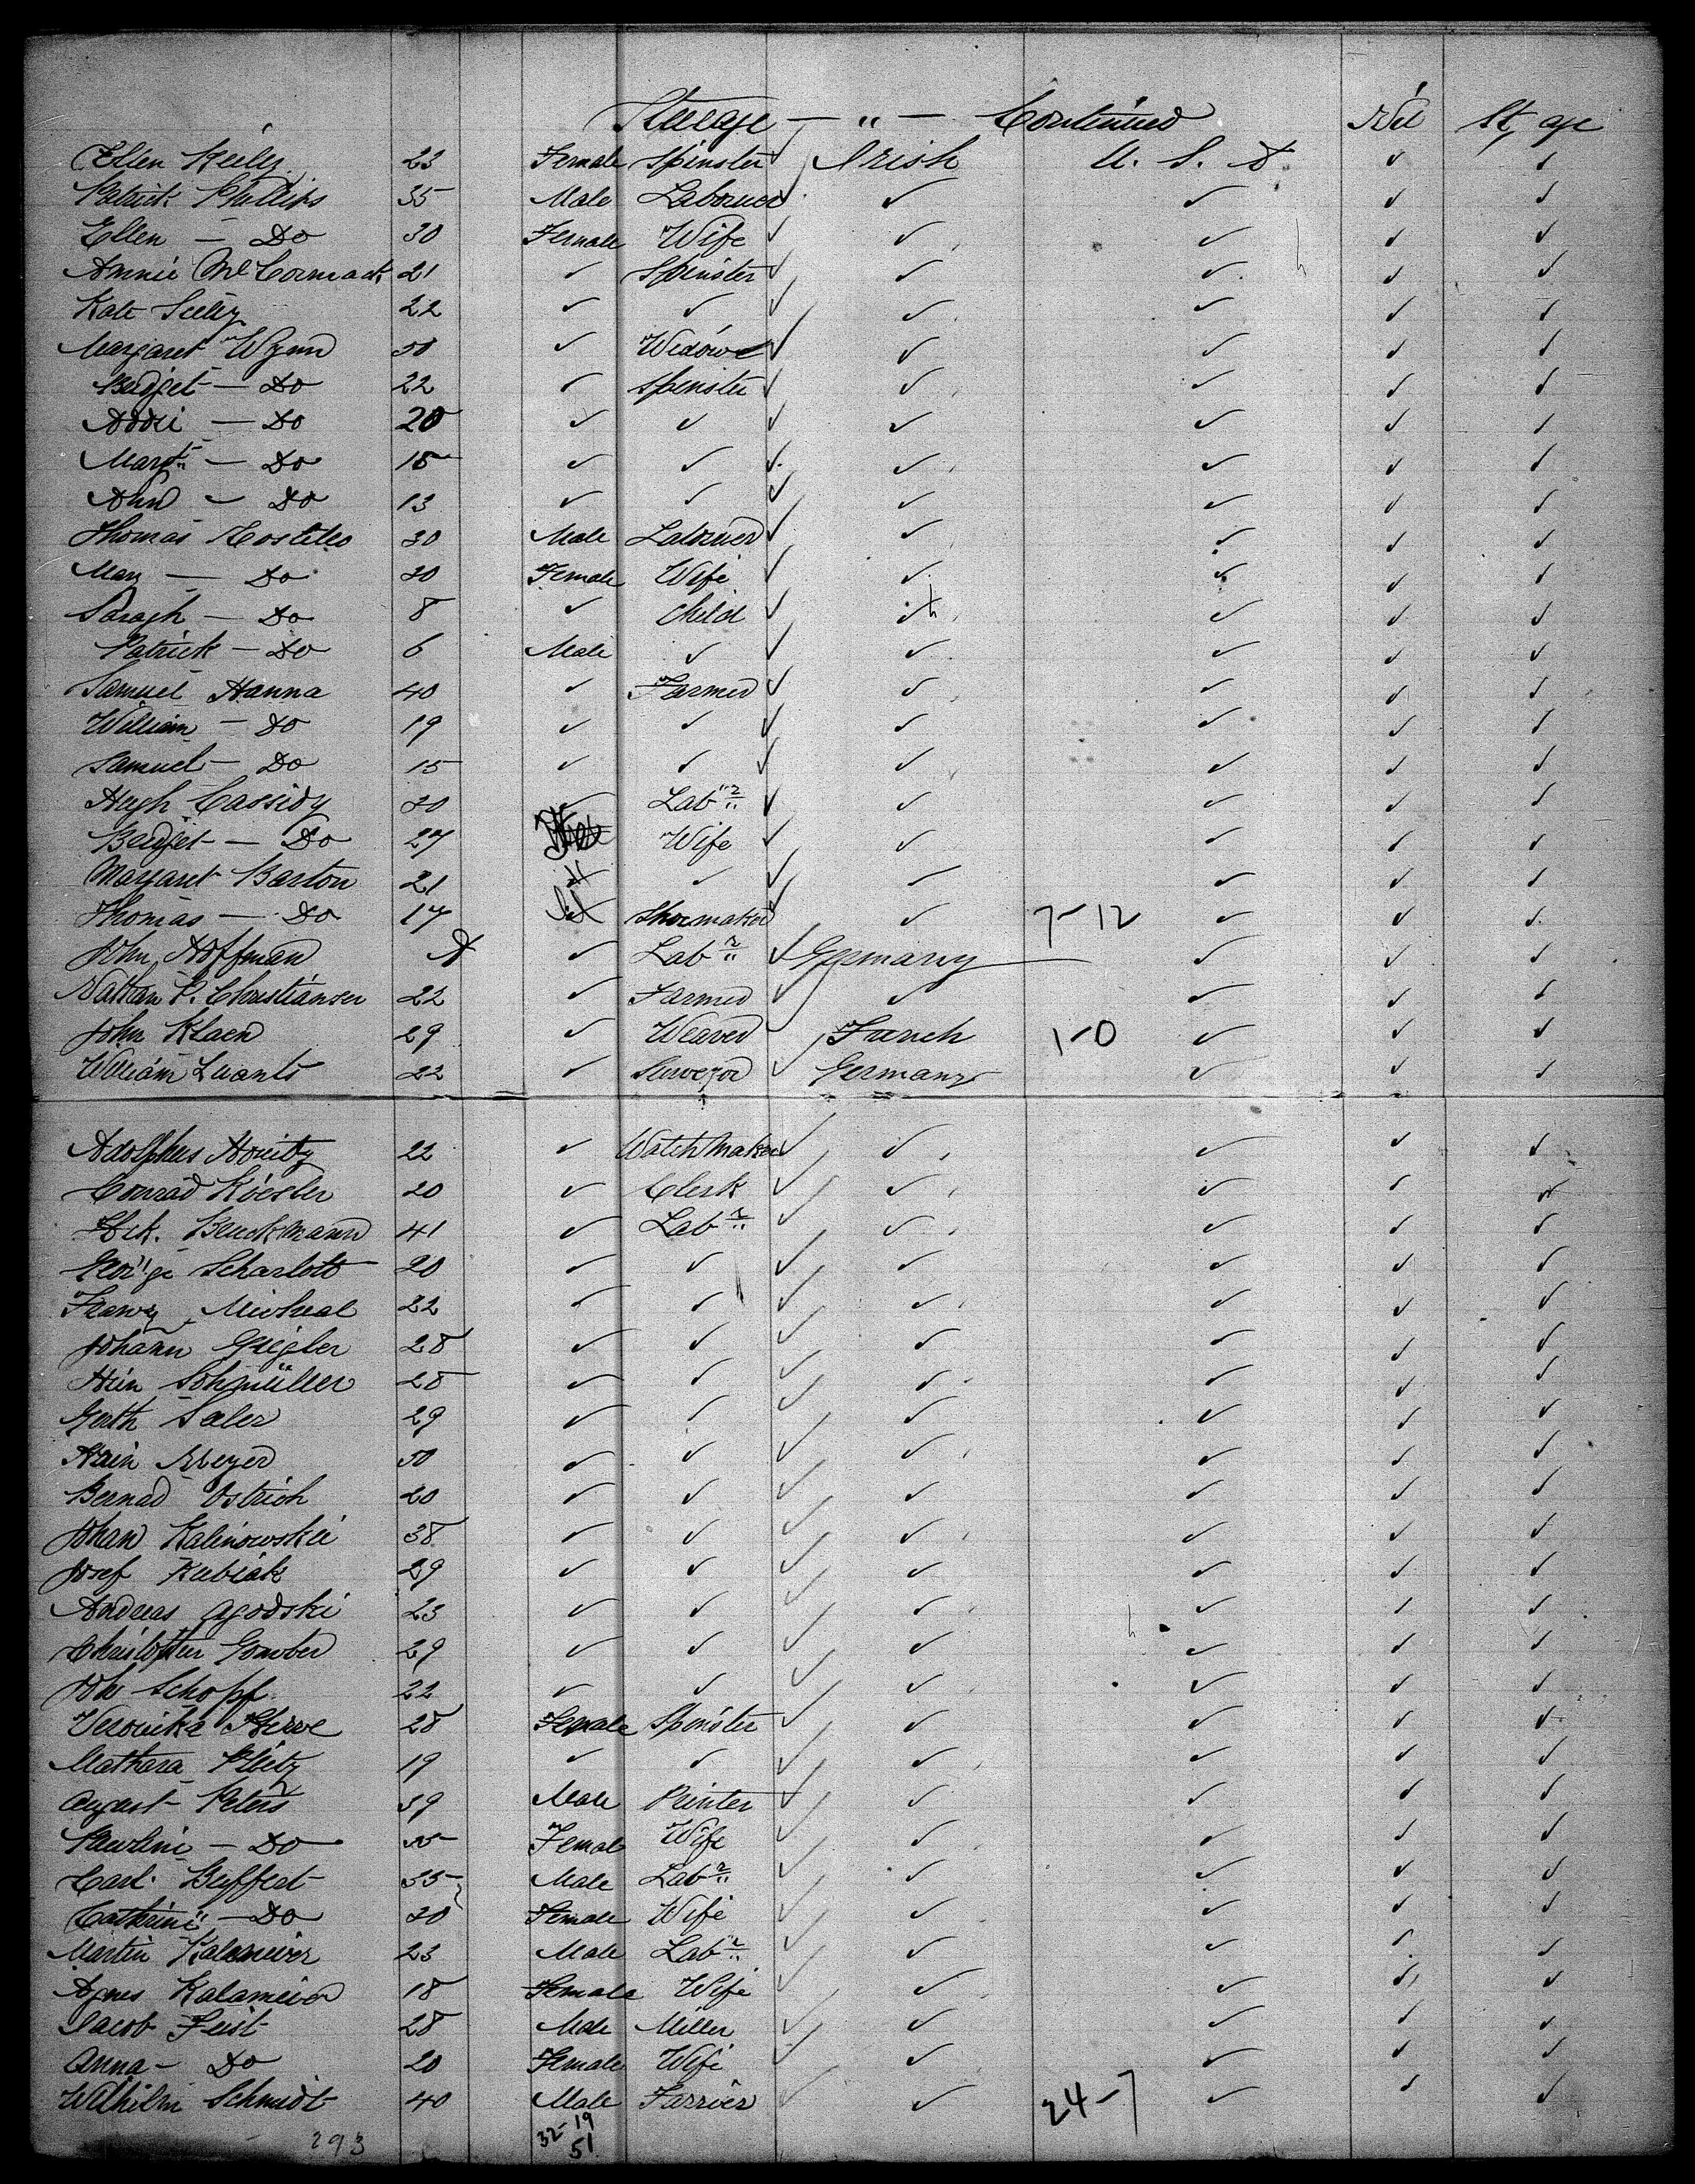 Steerage — " — Continued Nil St, age
Ellen Keiley 23 Female Spinster ✓ Irish U. S. A ✓ ✓
Patrick Phillips 35 Male Labourer ✓ ✓ ✓ ✓ ✓
Ellen — Do 30 Female Wife ✓ ✓ ✓ ✓ ✓
Annie McCormack 21 ✓ Spinster ✓ ✓ ✓ ✓ ✓
Kate Seeley 22 ✓ ✓ ✓ ✓ ✓ ✓ ✓
Margaret Wynn 50 ✓ Widow ✓ ✓ ✓ ✓ ✓
Bridget — Do 22 ✓ Spinster ✓ ✓ ✓ ✓ ✓
— Do 20 ✓ ✓ ✓ ✓ ✓ ✓ ✓
Margt — Do 15 ✓ ✓ ✓ ✓ ✓ ✓ ✓
Ann — Do 13 ✓ ✓ ✓ ✓ ✓ ✓ ✓
Thomas Costello 30 Male Labourer ✓ ✓ ✓ ✓ ✓
Mary — Do 30 Female Wife ✓ ✓ ✓ ✓ ✓
Saragh — Do 8 ✓ Child ✓ ✓ ✓ ✓ ✓
Patrick — Do 6 Male ✓ ✓ ✓ ✓ ✓ ✓
Samuel Hanna 40 ✓ Farmer ✓ ✓ ✓ ✓ ✓
William — Do 19 ✓ ✓ ✓ ✓ ✓ ✓ ✓
Samuel — Do 15 ✓ ✓ ✓ ✓ ✓ ✓ ✓
Hugh Cassidy 30 ✓ Labr ✓ ✓ ✓ ✓ ✓
Bridget — Do 27 Wife ✓ ✓ ✓ ✓ ✓
Margaret Barton 21 ✓ ✓ ✓ ✓ ✓ ✓
Thomas — Do 17 Shoemaker ✓ ✓ 7-12 ✓ ✓ ✓
John Hoffman ✓ Labr ✓ Germany ✓ ✓ ✓
Nathan P. Christiansen 22 ✓ Farmer ✓ ✓ ✓ ✓ ✓
John Klaen 29 ✓ Weaver ✓ French 1-0 ✓ ✓ ✓
William Lwants 22 ✓ Surveyor ✓ Germany ✓ ✓ ✓
Adolphus 22 ✓ Watch Maker ✓ ✓ ✓ ✓ ✓
Conrad Koesler 20 ✓ Clerk ✓ ✓ ✓ ✓ ✓
Beuckmann 41 ✓ Labr ✓ ✓ ✓ ✓ ✓
George Scharlott 20 ✓ ✓ ✓ ✓ ✓ ✓ ✓
Franz Micheal 22 ✓ ✓ ✓ ✓ ✓ ✓ ✓
Johann Griegler 28 ✓ ✓ ✓ ✓ ✓ ✓ ✓
Hein Schmüller 28 ✓ ✓ ✓ ✓ ✓ ✓ ✓
Gerth Saler 29 ✓ ✓ ✓ ✓ ✓ ✓ ✓
Hein Meyer 50 ✓ ✓ ✓ ✓ ✓ ✓ ✓
Bernad Ostrich 20 ✓ ✓ ✓ ✓ ✓ ✓ ✓
Johan Kalinowskii 38 ✓ ✓ ✓ ✓ ✓ ✓ ✓
Josef Kubiak 29 ✓ ✓ ✓ ✓ ✓ ✓ ✓
Andreas Agodski 23 ✓ ✓ ✓ ✓ ✓ ✓ ✓
Christopher Gomber 29 ✓ ✓ ✓ ✓ ✓ ✓ ✓
Joh Schopf 22 ✓ ✓ ✓ ✓ ✓ ✓ ✓
Veronika 28 Female Spinster ✓ ✓ ✓ ✓ ✓
Mathara Plietz 19 ✓ ✓ ✓ ✓ ✓ ✓ ✓
August Peters 39 Male Printer ✓ ✓ ✓ ✓ ✓
Paulini — Do 35 Female Wife ✓ ✓ ✓ ✓ ✓
Carl Beyffert 35 Male Labr ✓ ✓ ✓ ✓ ✓
Cathrini — Do 30 Female Wife ✓ ✓ ✓ ✓ ✓
Martin Kalameier 23 Male Labr ✓ ✓ ✓ ✓ ✓
Agnes Kalameier 18 Female Wife ✓ ✓ ✓ ✓ ✓
Jacob Feist 28 Male Miller ✓ ✓ ✓ ✓ ✓
Anna — Do 20 Female Wife ✓ ✓ ✓ ✓ ✓
Wilhilm Schmidt 40 Male Farrier ✓ ✓ 24-7 ✓ ✓ ✓
293 32-19
51